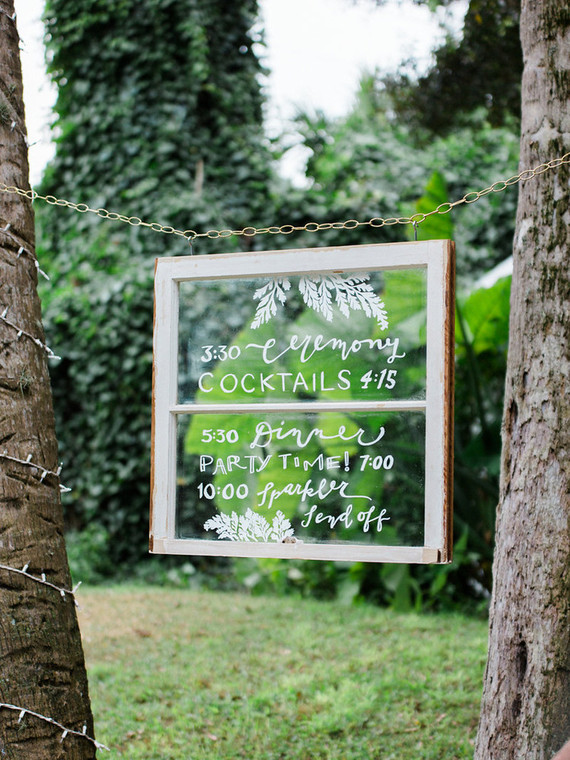 3:30 Ceremony
COCKTAILS 4:15
5:30 Dinner
PARTY TIME! 7:00
10:00 Sparkler
Send off